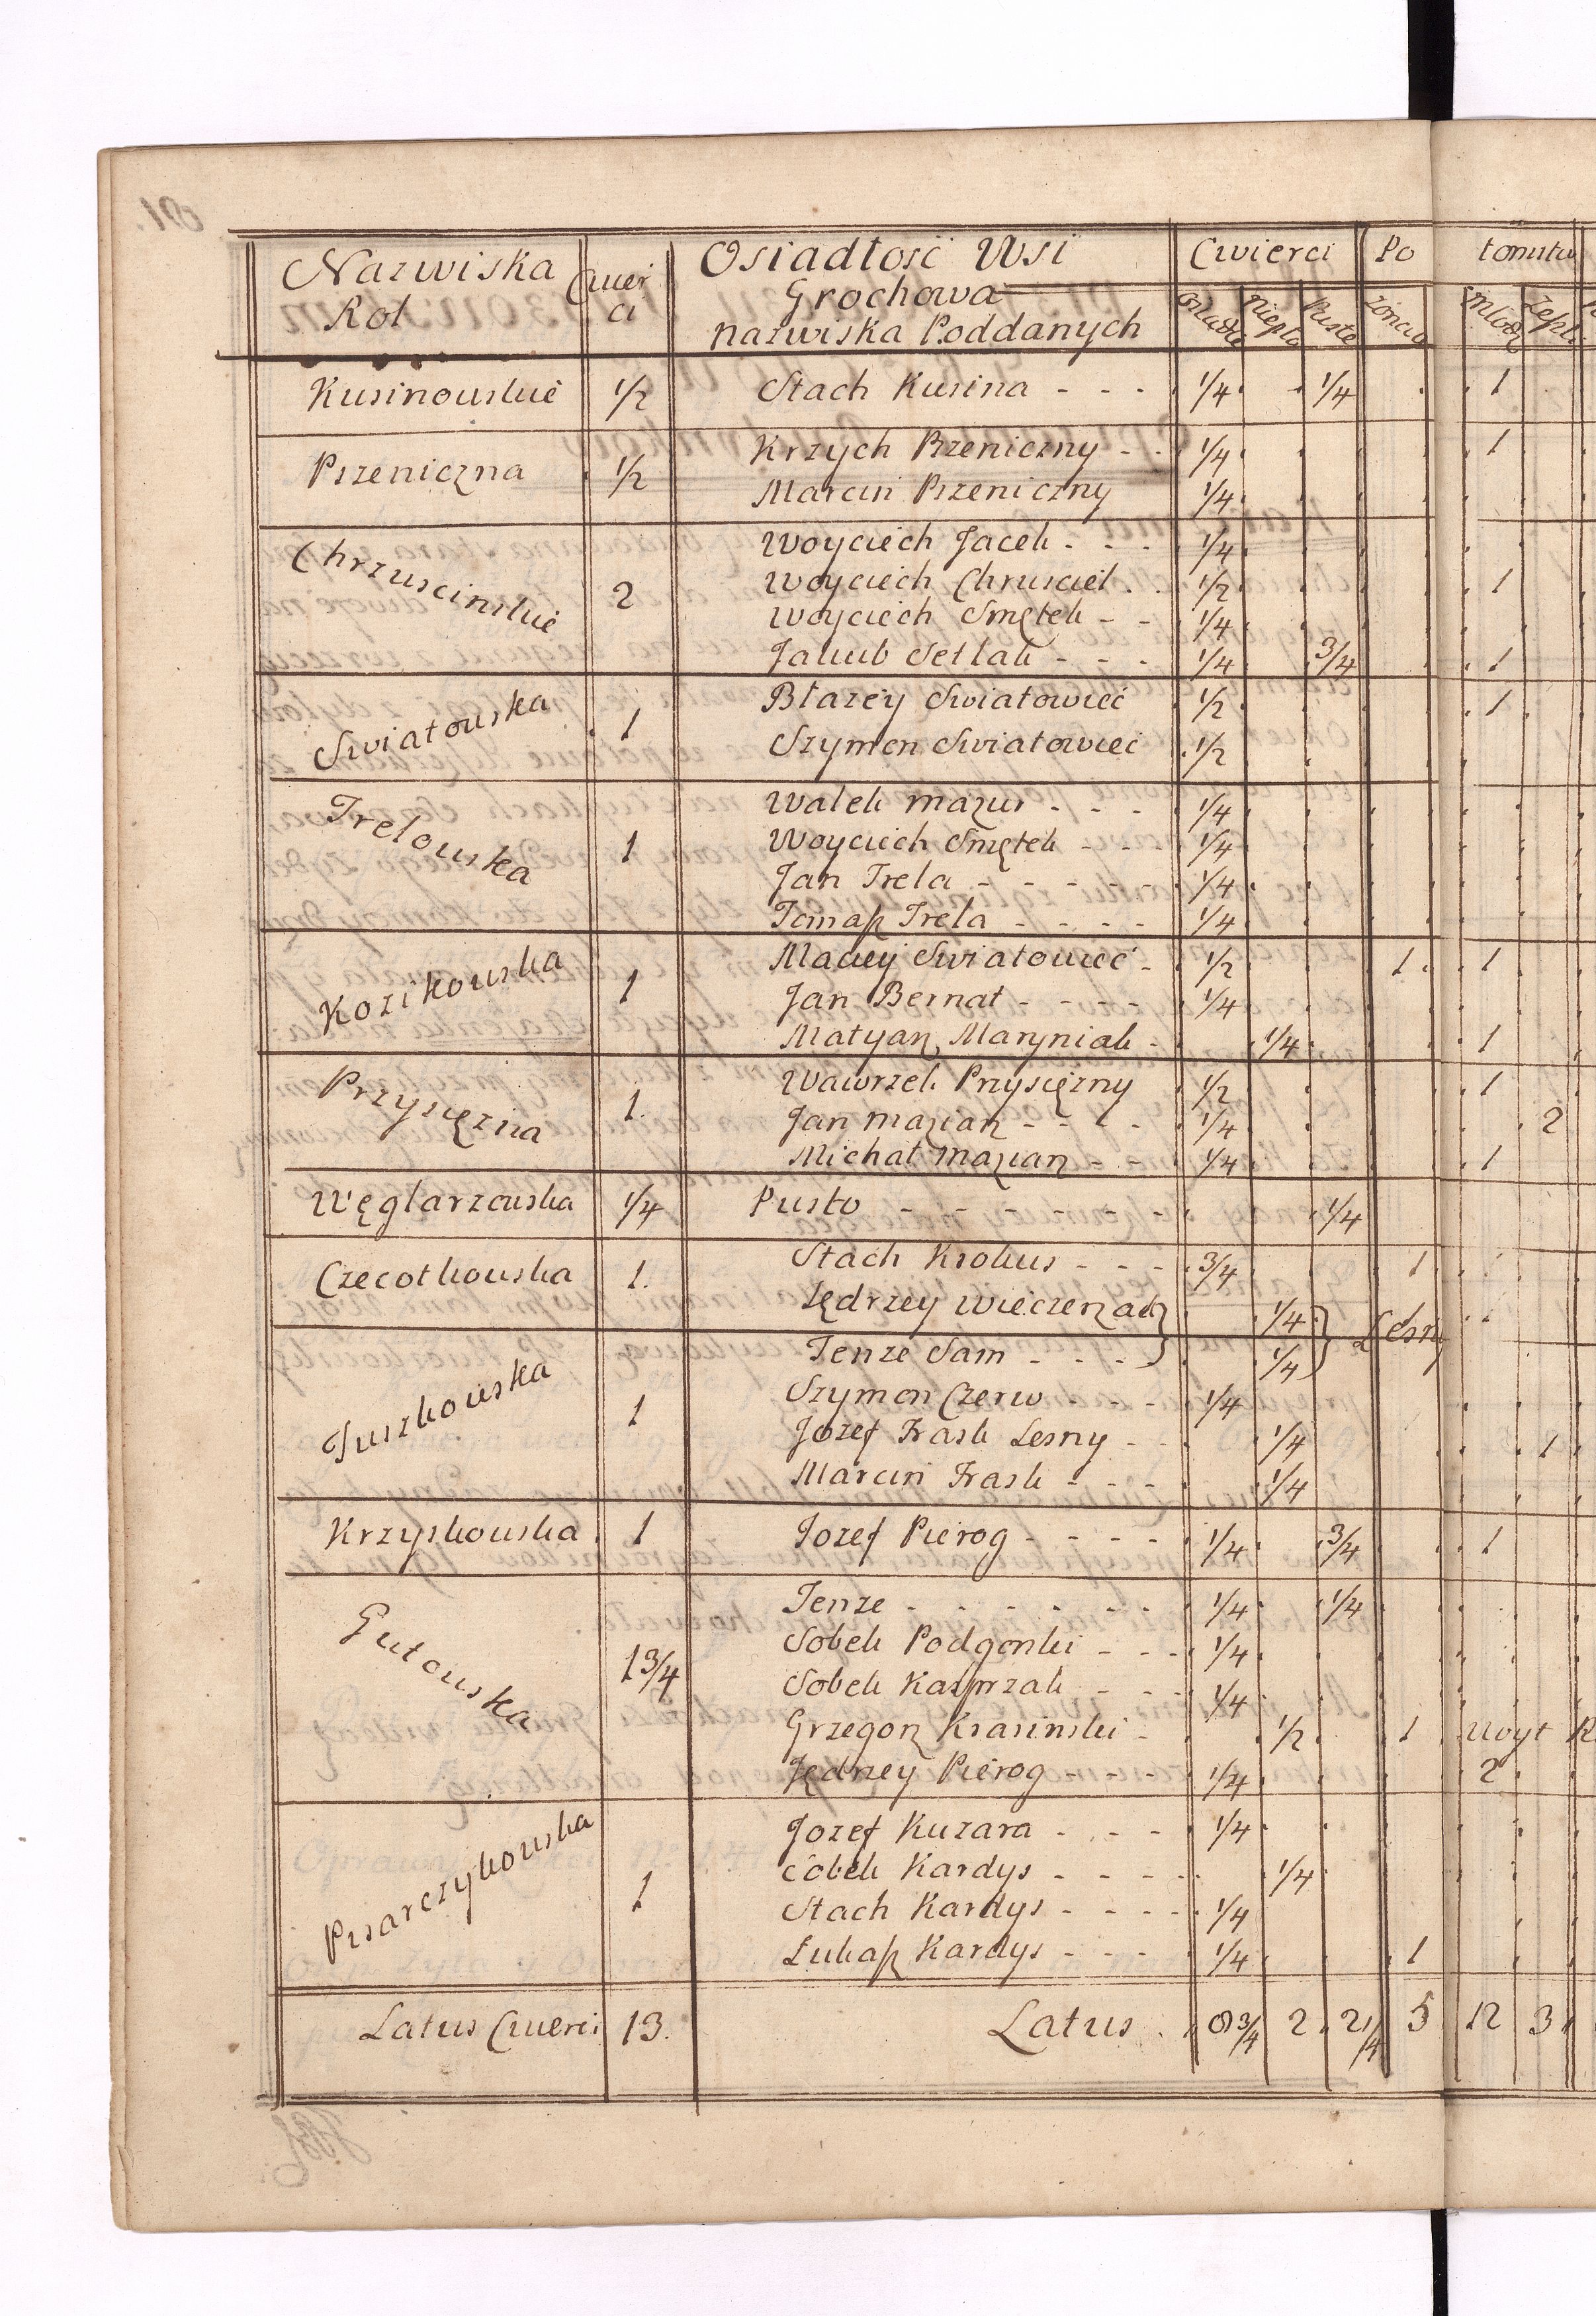 Nazwiska Rol | Cwierci | Osiadłość Wsi Grochowa nazwiska Poddanych | Cwierci | Po tomstw
Osiadłe | Niepło | Puste | Młodz
Kusinowskie | 1/2 | Stach Kusina - - - | 1/4 | | 1/4 | | 1
Pszeniczna | 1/2 | Krzych Pszeniczny - - | 1/4 | | | | 1
Marcin Pszeniczny | 1/4
Chrzuscinskie | 2 | Woyciech Jacek - - - | 1/4
Woyciech Chrusciel | 1/2 | | | | 1
Woyciech Smętek - - | 1/4
Jakub Setlak - - - | 1/4 | | 3/4 | | 1
Swiatowska | 1 | Błazey Swiatowiec | 1/2 | | | | 1
Szymon Swiatowiec | 1/2
Trelowska | 1 | Walek Mazur - - - | 1/4
Woyciech Smętek - - - | 1/4
Jan Trela - - - - - | 1/4
Tomasz Trela - - - - | 1/4
Kozikowska | 1 | Maciey Swiatowiec - | 1/2 | | | 1 | 1
Jan Bernat - - - - | 1/4
Matyasz Maryniak - | | 1/4 | | | 1
Przysięzna | 1 | Wawrzek Przysięzny | 1/2 | | | | 1
Jan Mazian - - - - | 1/4 | | | | | 2
Michał Mazian - - - | 1/4 | | | | 1
Węglarzowska | 1/4 | Pusto - - - - - - - | | | 1/4
Czecotkowska | 1 | Stach Krokus - - - | 3/4 | | | 1
Jędrzey Wieczerzak } | | 1/4 } Lesny
Tuszkowska | 1 | Tenze Sam - - - } | | 1/4 }
Szymon Czerw - - - | 1/4
Jozef Frask Lesny - - | | 1/4 | | | | 1
Marcin Frask - - - - | | 1/4
Krzyskowska | 1 | Jozef Pierog - - - - | 1/4 | | 3/4 | | 1
Gutowska | 1 3/4 | Tenze - - - - - - - | 1/4 | | 1/4
Sobek Podgorski - - - | 1/4
Sobek Kasprzak - - - | 1/4
Grzegorz Krasinski - | | 1/2 | | 1 | Woyt
Jędrzey Pierog - - - - | 1/4 | | | | 2
Pisarczykowska | 1 | Jozef Kuzara - - - | 1/4
Sobek Kardys - - - - - | | 1/4
Stach Kardys - - - - - | 1/4
Łukasz Kardys - - - - | 1/4 | | | 1
Latus Cwierci | 13. | Latus | 8 3/4 | 2 | 2 1/4 | 5 | 12 | 3